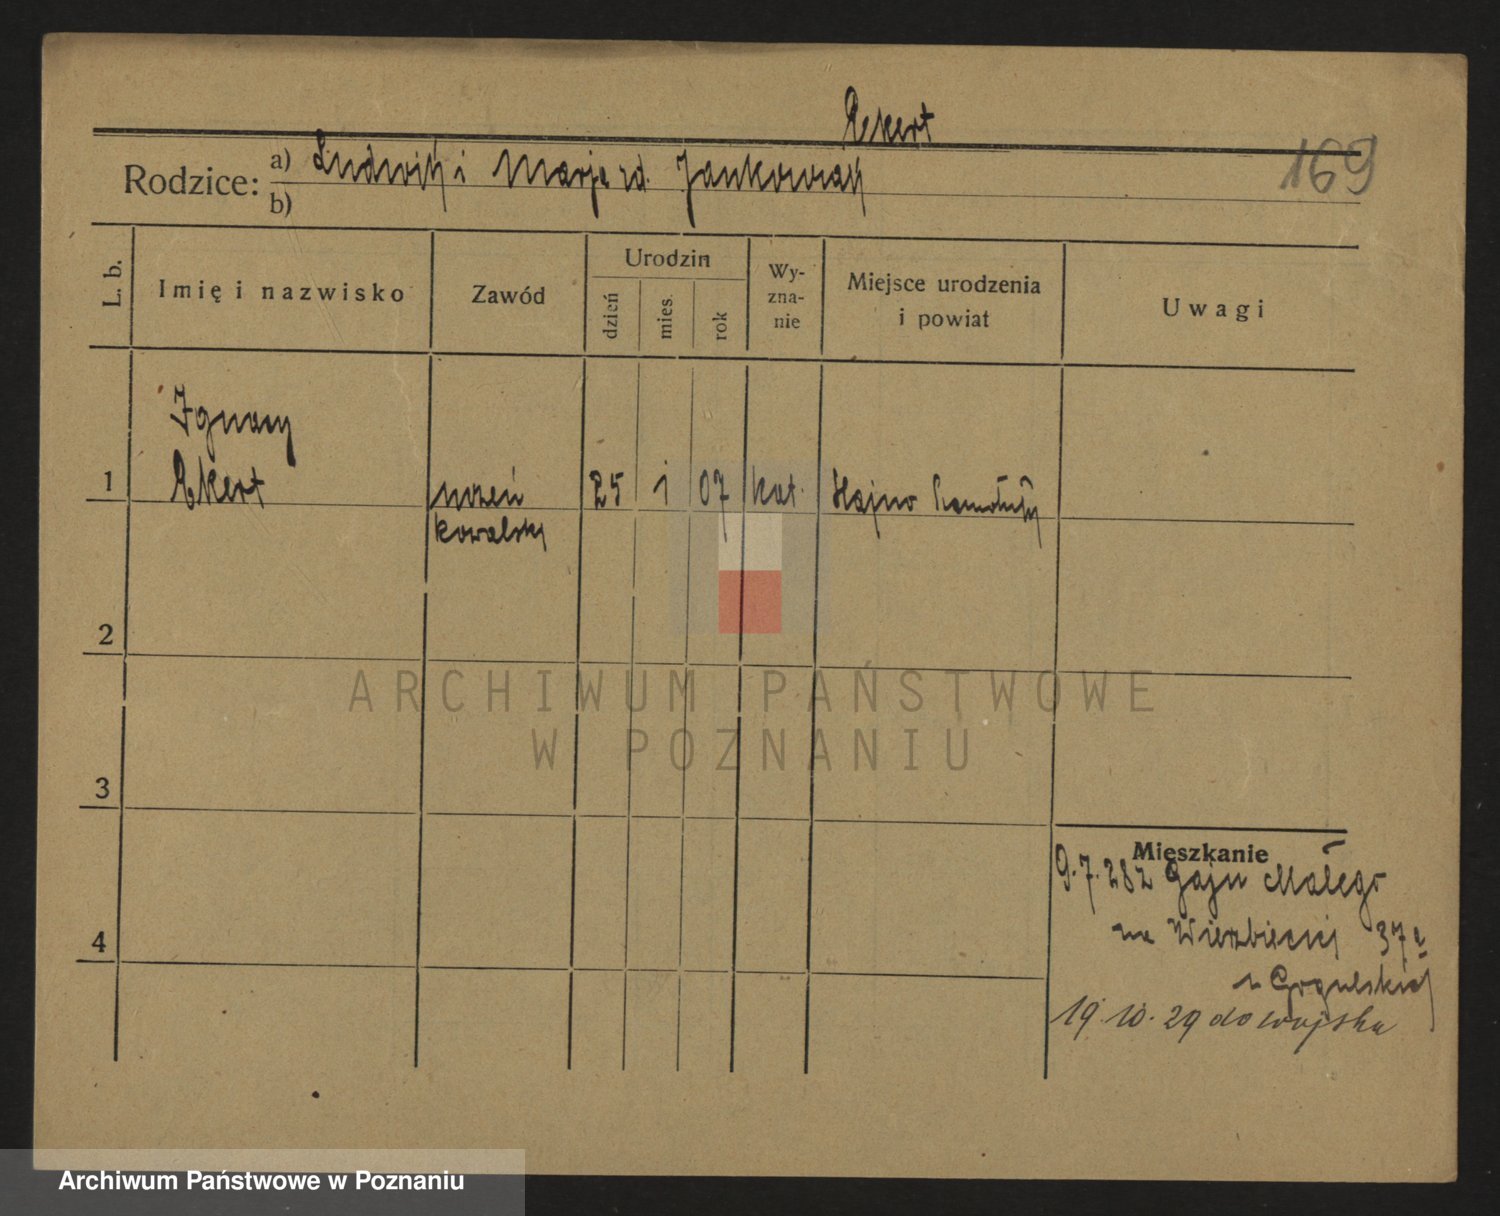 Ekert
169
Rodzice: a) Ludwik i Marja zd. Jankowiak
b)
L. b.
Imię i nazwisko
Zawód
Urodzin
dzień
mies.
rok
Wy-
zna-
nie
Miejsce urodzenia
i powiat
Uwagi
Ignacy
1 Ekert uczeń 25 1 07 kat.
kowalski
2
3
4
Mieszkanie
9.7.28 z Gaju Małego
na Wierzbięcic 37a
19.10.29 do wojska
ARCHIWUM PAŃSTWOWE
W POZNANIU
Archiwum Państwowe w Poznaniu